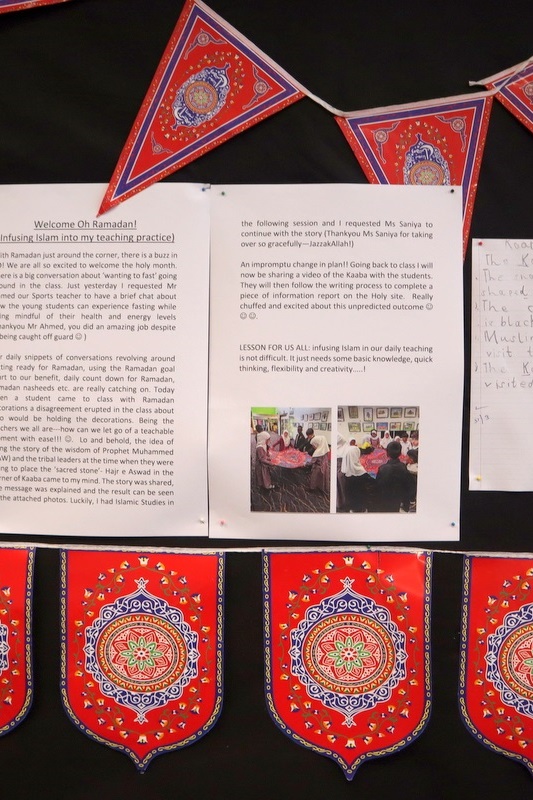 Welcome Oh Ramadan!
Infusing Islam into my teaching practice)
ith Ramadan just around the corner, there is a buzz in
! We are all so excited to welcome the holy month.
ere is a big conversation about 'wanting to fast' going
ound in the class. Just yesterday I requested Mr
med our Sports teacher to have a brief chat about
w the young students can experience fasting while
ing mindful of their health and energy levels
hankyou Mr Ahmed, you did an amazing job despite
being caught off guard ☺ )
r daily snippets of conversations revolving around
ting ready for Ramadan, using the Ramadan goal
rt to our benefit, daily count down for Ramadan,
madan nasheeds etc. are really catching on. Today
en a student came to class with Ramadan
corations a disagreement erupted in the class about
o would be holding the decorations. Being the
chers we all are---how can we let go of a teachable
ment with ease!!! ☺. Lo and behold, the idea of
ng the story of the wisdom of Prophet Muhammed
AW) and the tribal leaders at the time when they were
ng to place the 'sacred stone'- Hajr e Aswad in the
rner of Kaaba came to my mind. The story was shared,
e message was explained and the result can be seen
the attached photos. Luckily, I had Islamic Studies in
the following session and I requested Ms Saniya to
continue with the story (Thankyou Ms Saniya for taking
over so gracefully—JazzakAllah!)
An impromptu change in plan!! Going back to class I will
now be sharing a video of the Kaaba with the students.
They will then follow the writing process to complete a
piece of information report on the Holy site. Really
chuffed and excited about this unpredicted outcome ☺
☺ ☺.
LESSON FOR US ALL: infusing Islam in our daily teaching
is not difficult. It just needs some basic knowledge, quick
thinking, flexibility and creativity.....!
The K
shared
The c
is black
Muslim
visit t
The K
visited